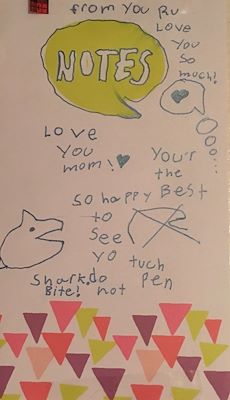 from you RU
LOVE
YOU
SO
much!
NOTES
LOVE
YOU
mom!
YOU'r
the
BEST
SO happy
to
SEE
YO
tuch
PEN
Shark.do
Bite! not